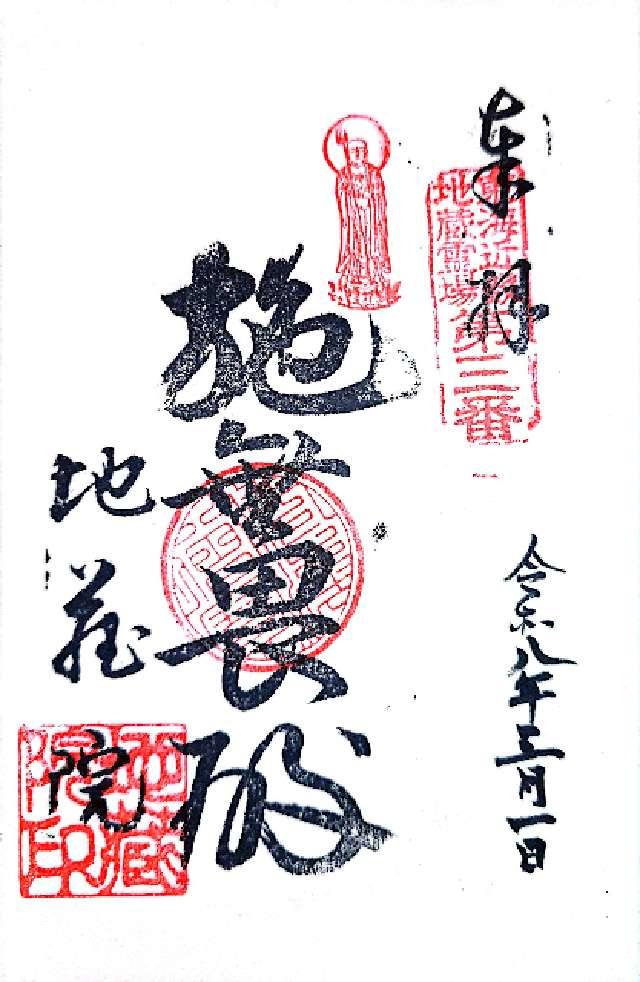 奉拝
東海近畿
地蔵霊場第三番
令和八年三月一日
施無畏殿
地蔵院
地蔵院印